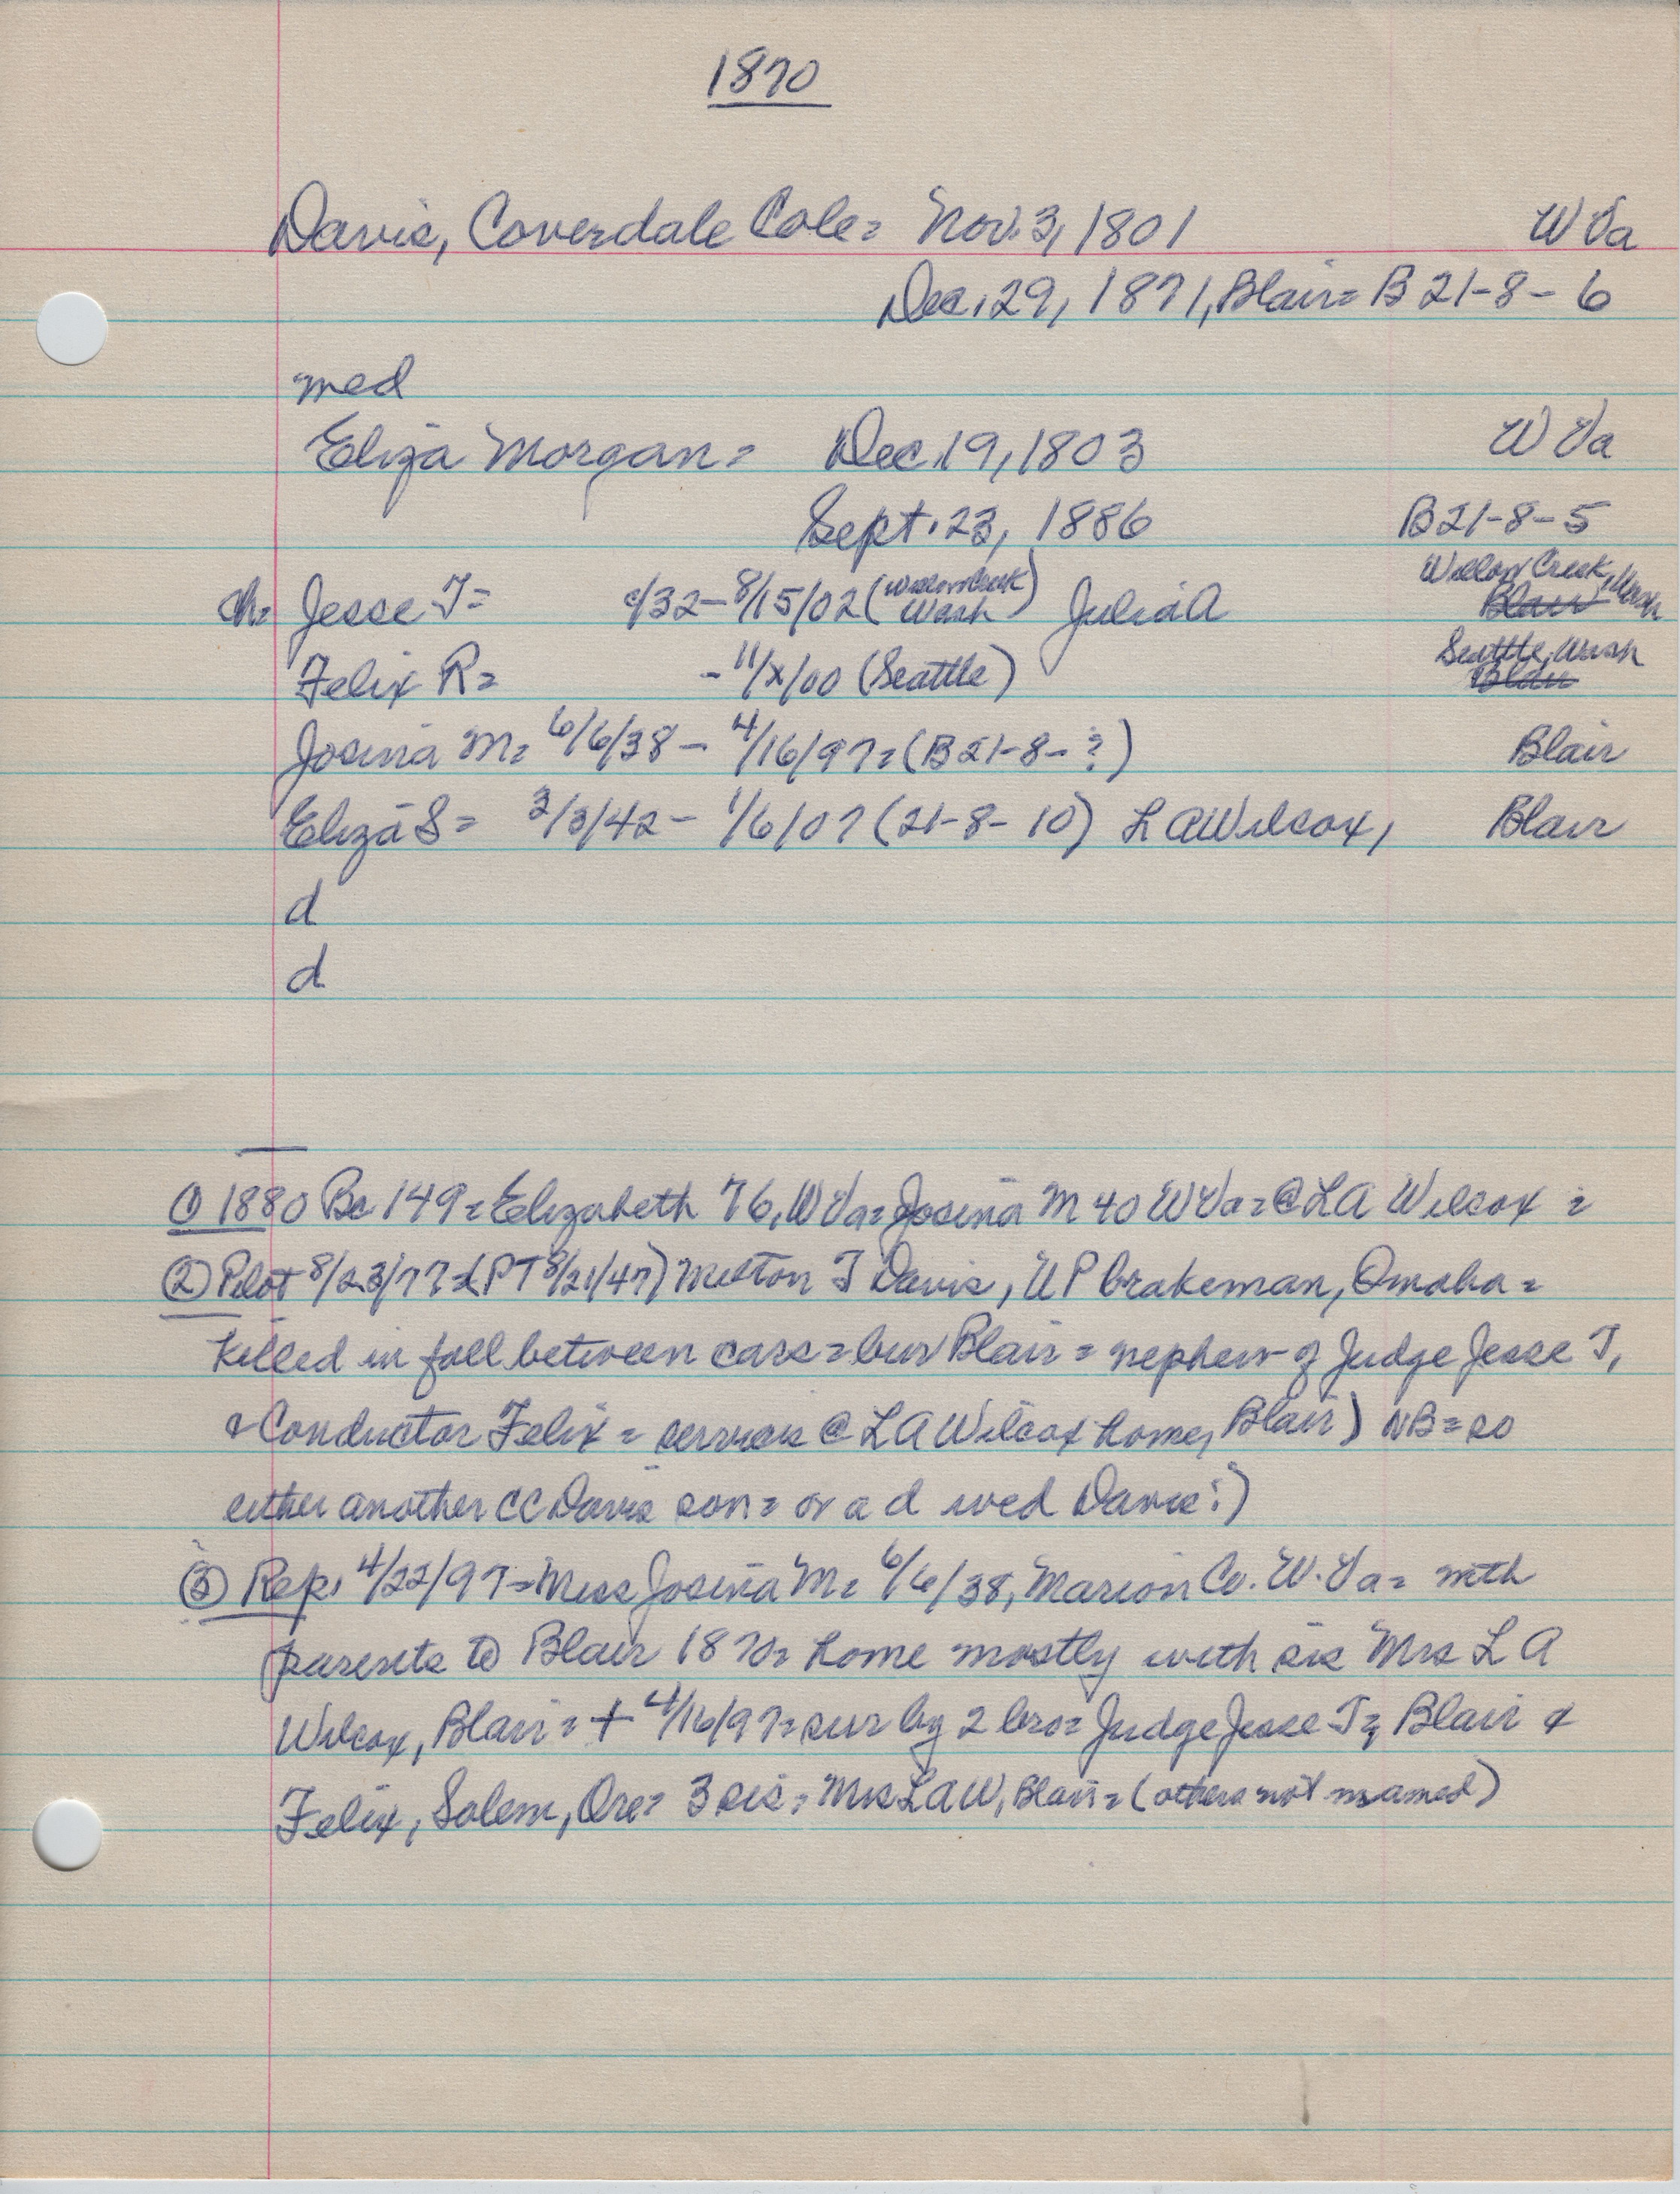 1870
Davis, Coverdale Cole = Nov. 3, 1801 W Va
Dec. 29, 1871, Blair = B 21-8-6
med
Eliza Morgan = Dec. 19, 1803 W Va
Sept. 23, 1886 B 21-8-5
ch = Jesse T = c/32 - 8/15/02 (Willow Creek Wash) Julia A Willow Creek, Wash Blair
Felix R = - 11/x/00 (Seattle) Seattle, Wash Blair
Josina M = 6/6/38 - 4/16/97 = (B 21-8-?) Blair
Eliza S = 3/3/42 - 1/6/07 (21-8-10) L A Wilcox, Blair
d
d
① 1880 Bc 149 = Elizabeth 76, W Va = Josina M 40 W Va = @ L A Wilcox =
② Pilot 8/23/77 = (PT 8/21/47) Melton T Davis, U P brakeman, Omaha =
killed in fall between cars = bur Blair = nephew of Judge Jesse T,
& Conductor Felix = services @ L A Wilcox home, Blair) NB = so
either another CC Davis son = or a d wed Davis :)
③ Rep. 4/22/97 = Miss Josina M = 6/6/38, Marion Co. W. Va = with
parents to Blair 1870 = home mostly with sis Mrs L A
Wilcox, Blair = + 4/16/97 = sur by 2 bro = Judge Jesse T, Blair &
Felix, Salem, Ore = 3 sis = Mrs L A W, Blair = (others not named)